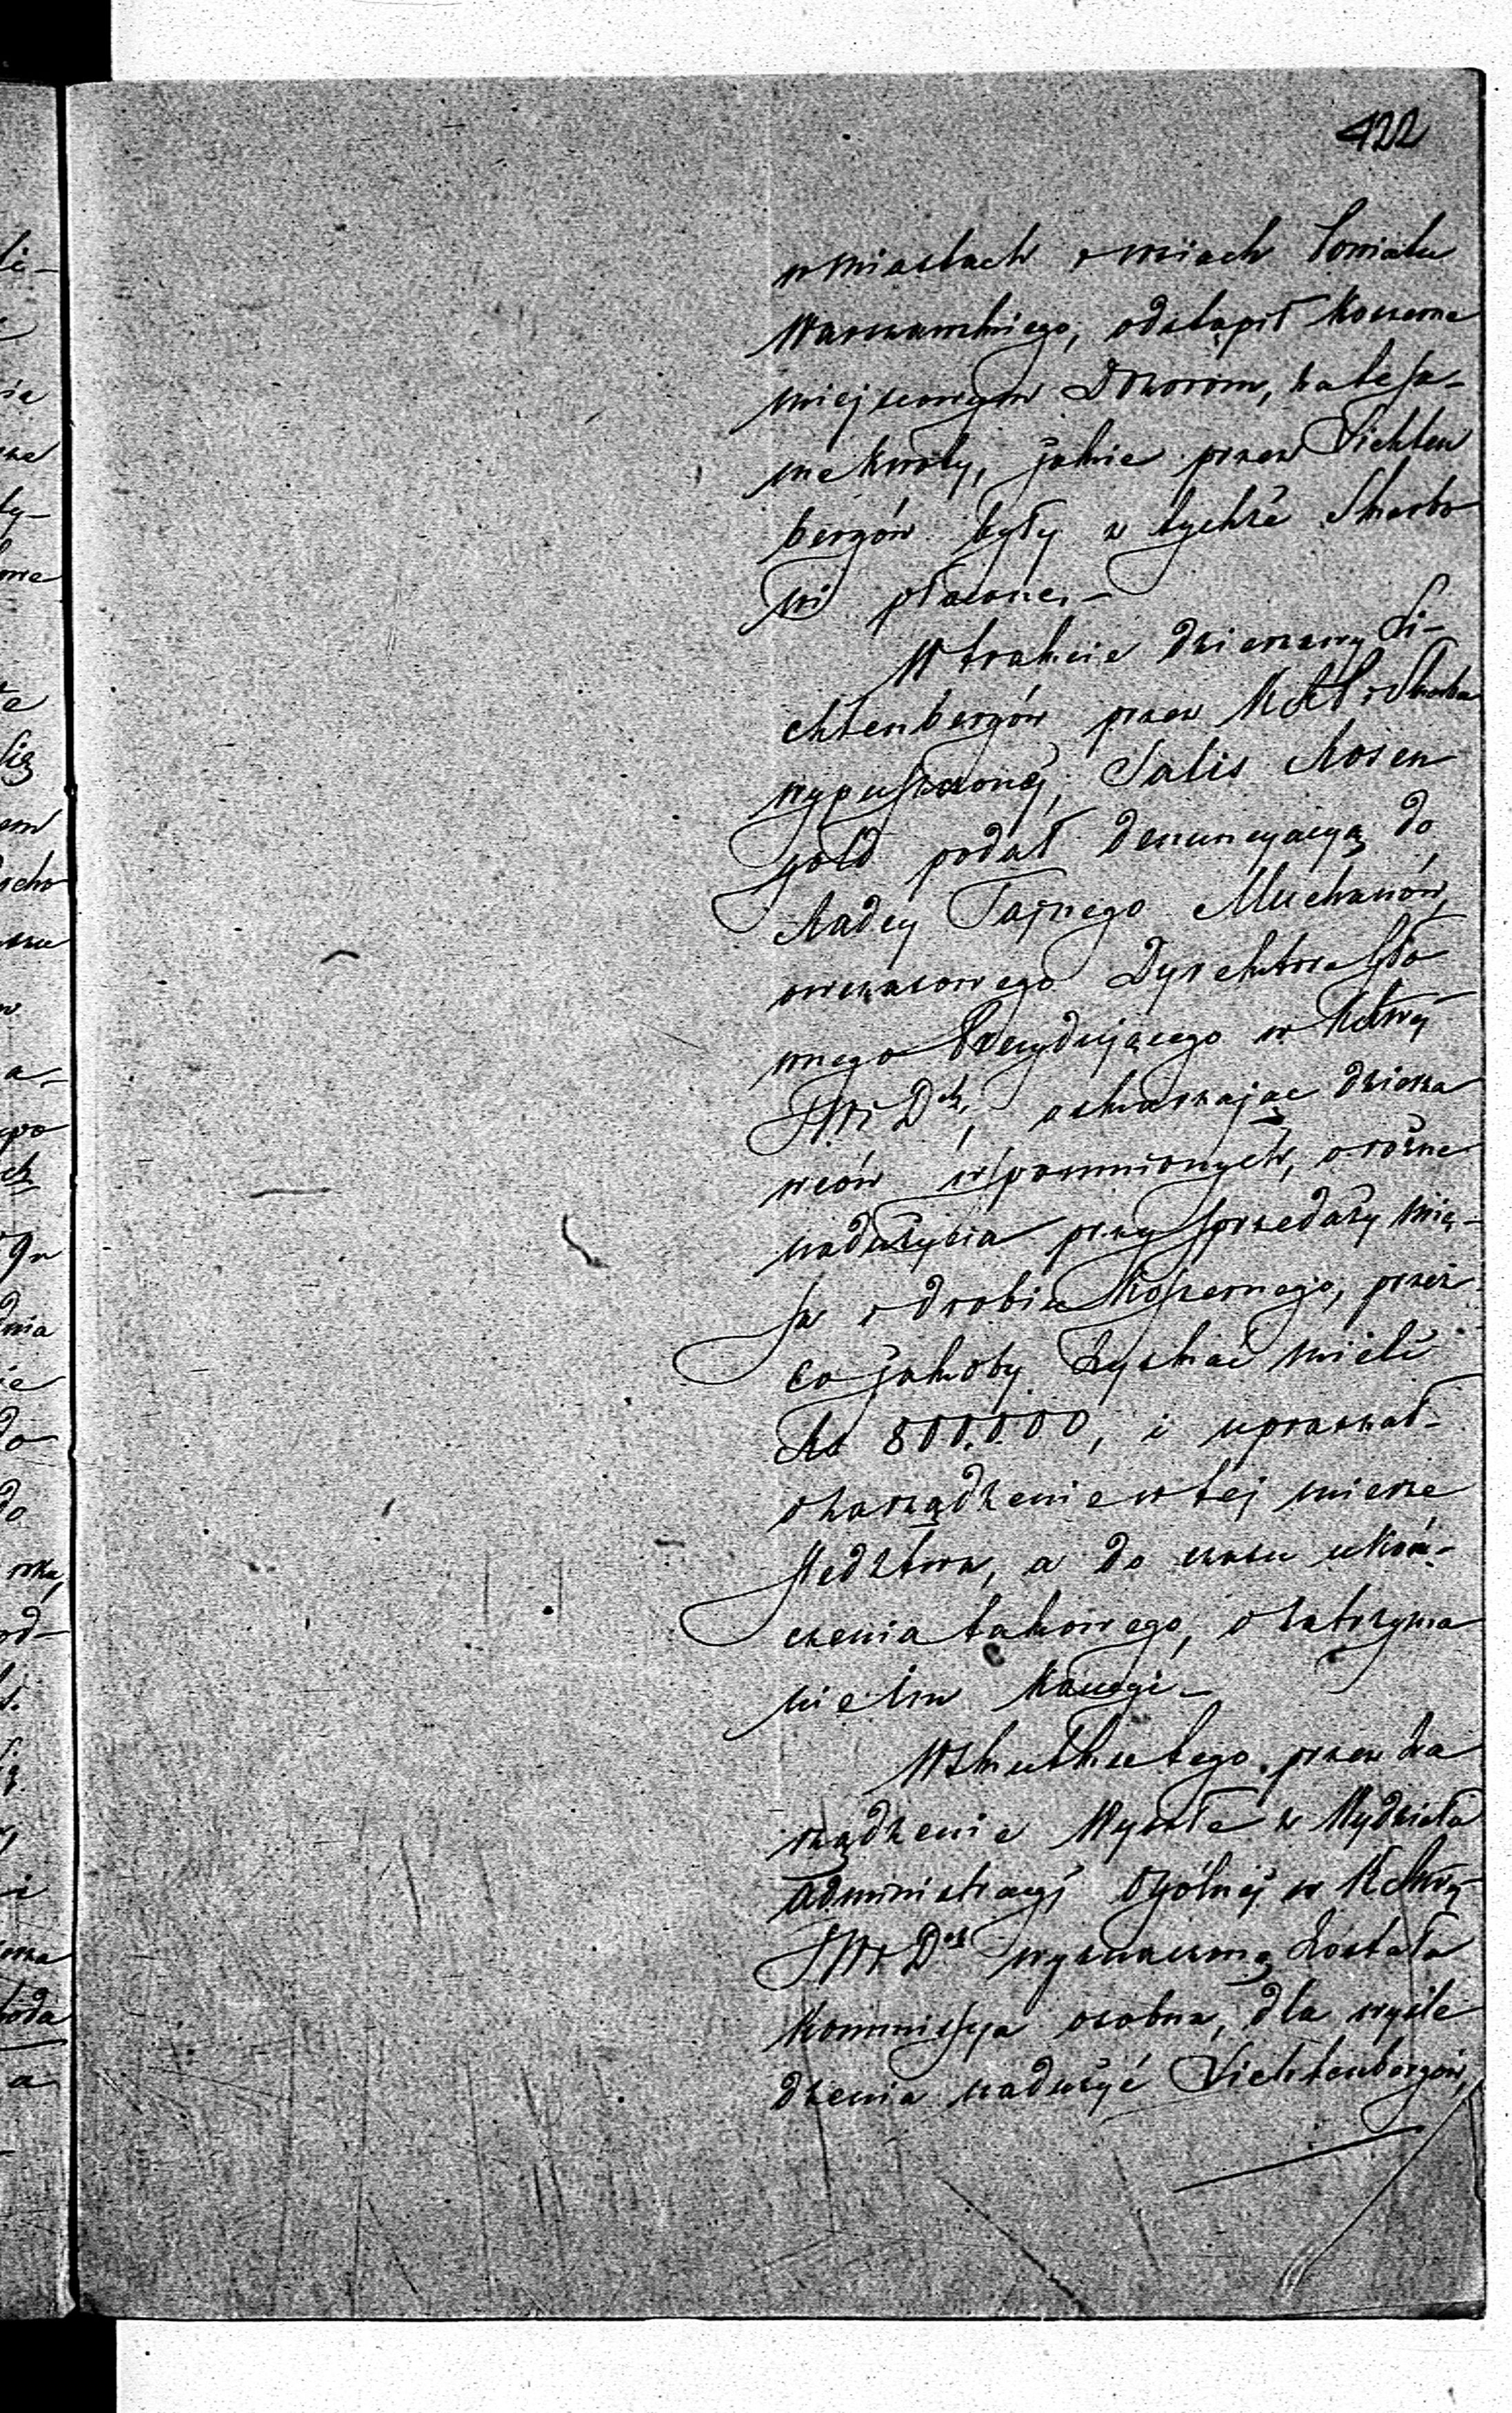 422
w miastach i wsiach Powiatu
Warszawskiego, odstąpił koszerne
miejscowym Dozorom, za te sa-
me kwoty, jakie przez Lichten
bergów były z tychże Skarbo
wi płacone. –
W trakcie dzierżawy Li-
chtenbergów przez K R P i Skarbu
wypuszczonej, Salis Rosen
gold podał denuncyacyą do
Radcy Tajnego Muchanów,
owczasowego Dyrektora Głó
wnego Prezydującego w Kch
S W i Dch, oskarżając dzierża
wców wspomnionych, o różne
nadużycia przy sprzedaży mię-
sa i drobiu koszernego, przez
co jakoby zyskać mieli
Rs 800.000, i upraszał
o zarządzenie w tej mierze
śledztwa, a do czasu ukoń-
czenia takowego, o zatrzyma
nie im kaucyi –
W skutku tego przez za
rządzenie Wyszłe z Wydziału
Administracyj Ogólnej w
S W i Dch wyznaczoną została
Kommissya osobna, dla wyśle
dzenia nadużyć Lichtenbergów,
li-
ty-
się
em
a-
dnia
ie
do
do
od-
i
a